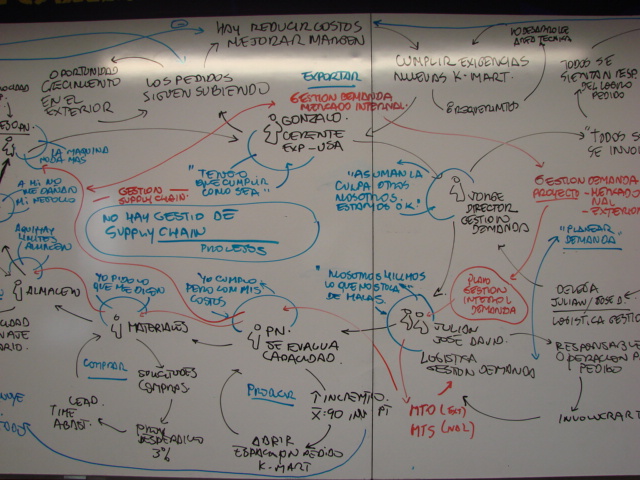 HAY REDUCIR COSTOS
MEJORAR MARGEN
OPORTUNIDAD
CRECIMIENTO
EN EL
EXTERIOR
LOS PEDIDOS
SIGUEN SUBIENDO
EXPORTAR
GESTION DEMANDA
MERCADO INTERNAL.
GONZALO.
GERENTE
EXP-USA
CUMPLIR EXIGENCIAS
NUEVAS K-MART.
REQUERIMTO
AREA TECNICA
TODOS SE
SIENTAN RESP.
DEL LOGRO
PEDIDO
"TODOS SE
SE INVOL
LA MAQUINA
"TENGO
QUE CUMPLIR
COMO SEA"
GESTION
SUPPLY CHAIN.
NO HAY GESTIO DE
SUPPLY CHAIN
PROCESOS
A MI NO
ME DAÑAN
MI NEGOCIO
"ASUMAN LA
CULPA OTROS
NOSOTROS
ESTAMOS O.K."
JORGE
DIRECTOR
GESTION
DEMANDA
GESTION DEMANDA
PROYECTO - MERCADO
NAL
- EXTERIOR
"PLANEAR
DEMANDA
ALMACEN
YO PIDO LO
QUE ME DICEN
YO CUMPLO
PERO CON MIS
COSTOS
"NOSOTROS HICIMOS
LO QUE NOS TOCA
DE MALAS"
PLAN
GESTION
INTEGRAL
DEMANDA
DELEGA
JULIAN/JOSE D
LOGISTICA GESTIO
MATERIALES
P.N.
SE EVALUA
CAPACIDAD.
JULIAN
JOSE DAVID.
LOGISTICA
GESTION DEMANDA
RESPONSABLE
OPERACION
PEDIDO
COMPRAR
SOLICITUDES
COMPRAS.
PRODUCIR
INCREMTO.
LEAD
TIME
ABAST.
PROM
DESPERDICIO
3%
ABRIR
PEDIDO
K-MART
MTO (EXT)
MTS (NAL)
INVOLUCRAR